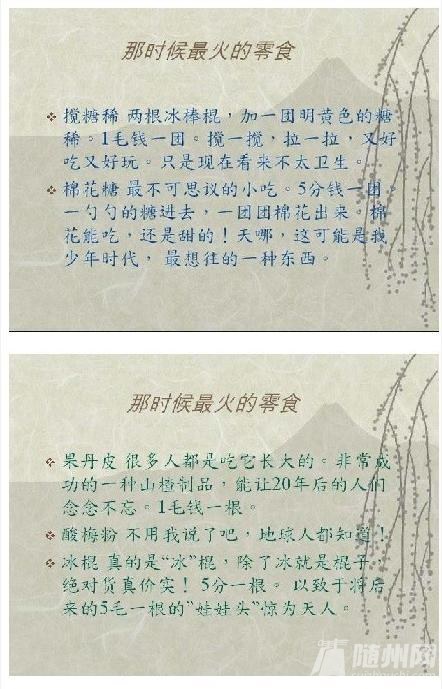 那时候最火的零食
搅糖稀 两根冰棒棍，加一团明黄色的糖
稀。1毛钱一团。搅一搅，拉一拉，又好
吃又好玩。只是现在看来不太卫生。
棉花糖 最不可思议的小吃。5分钱一团。
一勺勺的糖进去，一团团棉花出来。棉
花能吃，还是甜的！天哪，这可能是我
少年时代， 最想往的一种东西。
那时候最火的零食
果丹皮 很多人都是吃它长大的。非常成
功的一种山楂制品，能让20年后的人们
念念不忘。1毛钱一根。
酸梅粉 不用我说了吧，地球人都知道！
冰棍 真的是“冰”棍，除了冰就是棍子
绝对货真价实！ 5分一根。 以致于将后
来的5毛一根的“娃娃头”惊为天人。
随州网